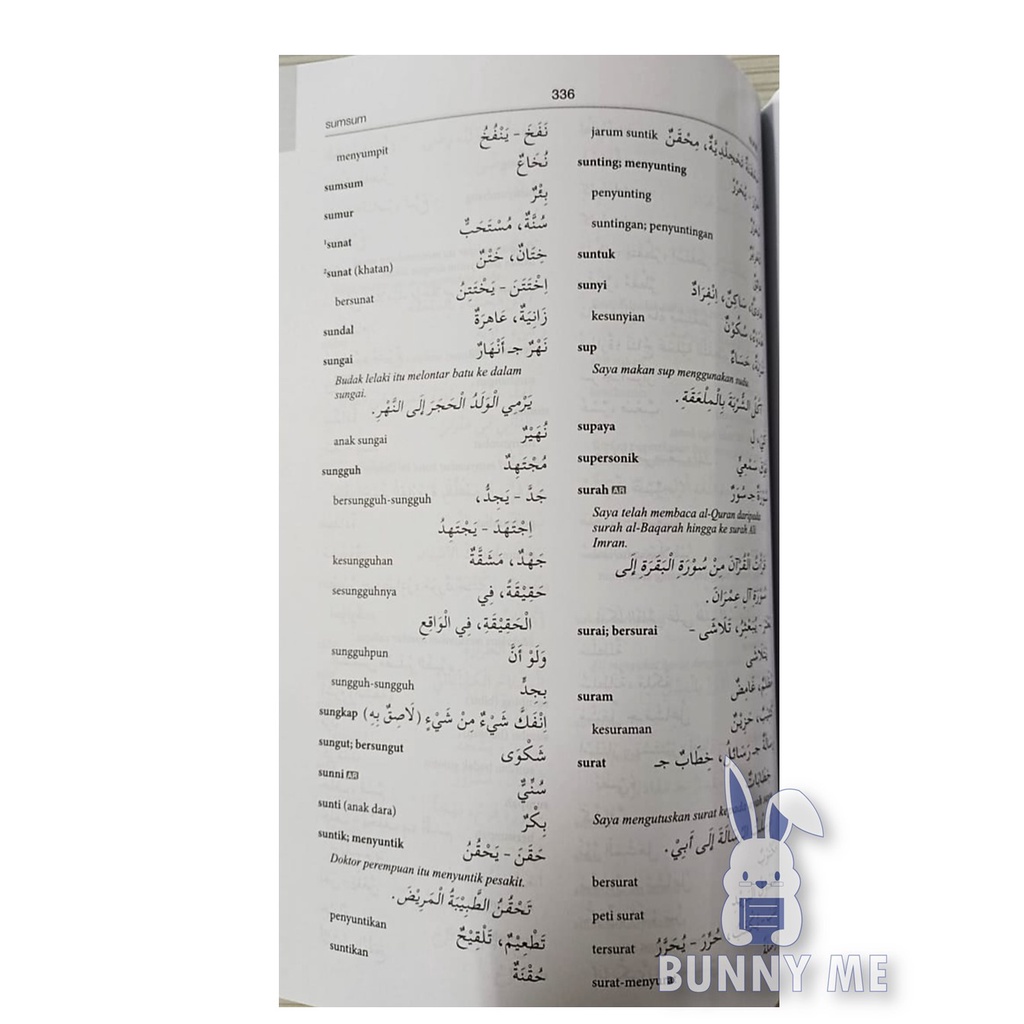 336
sumsum
menyumpit نَفَخَ - يَنْفُخُ
sumsum نُخَاعٌ
sumur بِئْرٌ
¹sunat سُنَّةٌ، مُسْتَحَبٌّ
²sunat (khatan) خِتَانٌ، خَتْنٌ
bersunat اِخْتَتَنَ - يَخْتَتِنُ
sundal زَانِيَةٌ، عَاهِرَةٌ
sungai نَهْرٌ جـ أَنْهَارٌ
Budak lelaki itu melontar batu ke dalam
sungai.
يَرْمِي الْوَلَدُ الْحَجَرَ إِلَى النَّهْرِ.
anak sungai نُهَيْرٌ
sungguh مُجْتَهِدٌ
bersungguh-sungguh جَدَّ - يَجِدُّ،
اِجْتَهَدَ - يَجْتَهِدُ
kesungguhan جَهْدٌ، مَشَقَّةٌ
sesungguhnya حَقِيْقَةً، فِي
الْحَقِيْقَةِ، فِي الْوَاقِعِ
sungguhpun وَلَوْ أَنَّ
sungguh-sungguh بِجِدٍّ
sungkap اِنْفَكَّ شَيْءٌ مِنْ شَيْءٍ (لَاصِقٌ بِهِ)
sungut; bersungut شَكْوَى
sunni AR سُنِّيٌّ
sunti (anak dara) بِكْرٌ
suntik; menyuntik حَقَنَ - يَحْقُنُ
Doktor perempuan itu menyuntik pesakit.
تَحْقُنُ الطَّبِيْبَةُ الْمَرِيْضَ.
penyuntikan تَطْعِيْمٌ، تَلْقِيْحٌ
suntikan حُقْنَةٌ
jarum suntik مِحْقَنٌ
sunting; menyunting يُحَرِّرُ
penyunting
suntingan; penyuntingan
suntuk
sunyi سَاكِنٌ، اِنْفِرَادٌ
kesunyian سُكُوْنٌ
sup حَسَاءٌ
Saya makan sup menggunakan sudu.
الشُّرْبَةَ بِالْمِلْعَقَةِ.
supaya
supersonik سَمْعِيٌّ
surah AR جـ سُوَرٌ
Saya telah membaca al-Quran daripada
surah al-Baqarah hingga ke surah Ali
Imran.
الْقُرْآنَ مِنْ سُوْرَةِ الْبَقَرَةِ إِلَى
سُوْرَةِ آلِ عِمْرَانَ.
surai; bersurai يُبَعْثِرُ، تَلَاشَى -
suram غَامِضٌ
kesuraman حَزِيْنٌ
surat جـ رَسَائِلُ، خِطَابٌ جـ
خِطَابَاتٌ
Saya mengutuskan surat
إِلَى أَبِيْ.
bersurat
peti surat
tersurat حُرِّرَ - يُحَرَّرُ
BUNNY ME